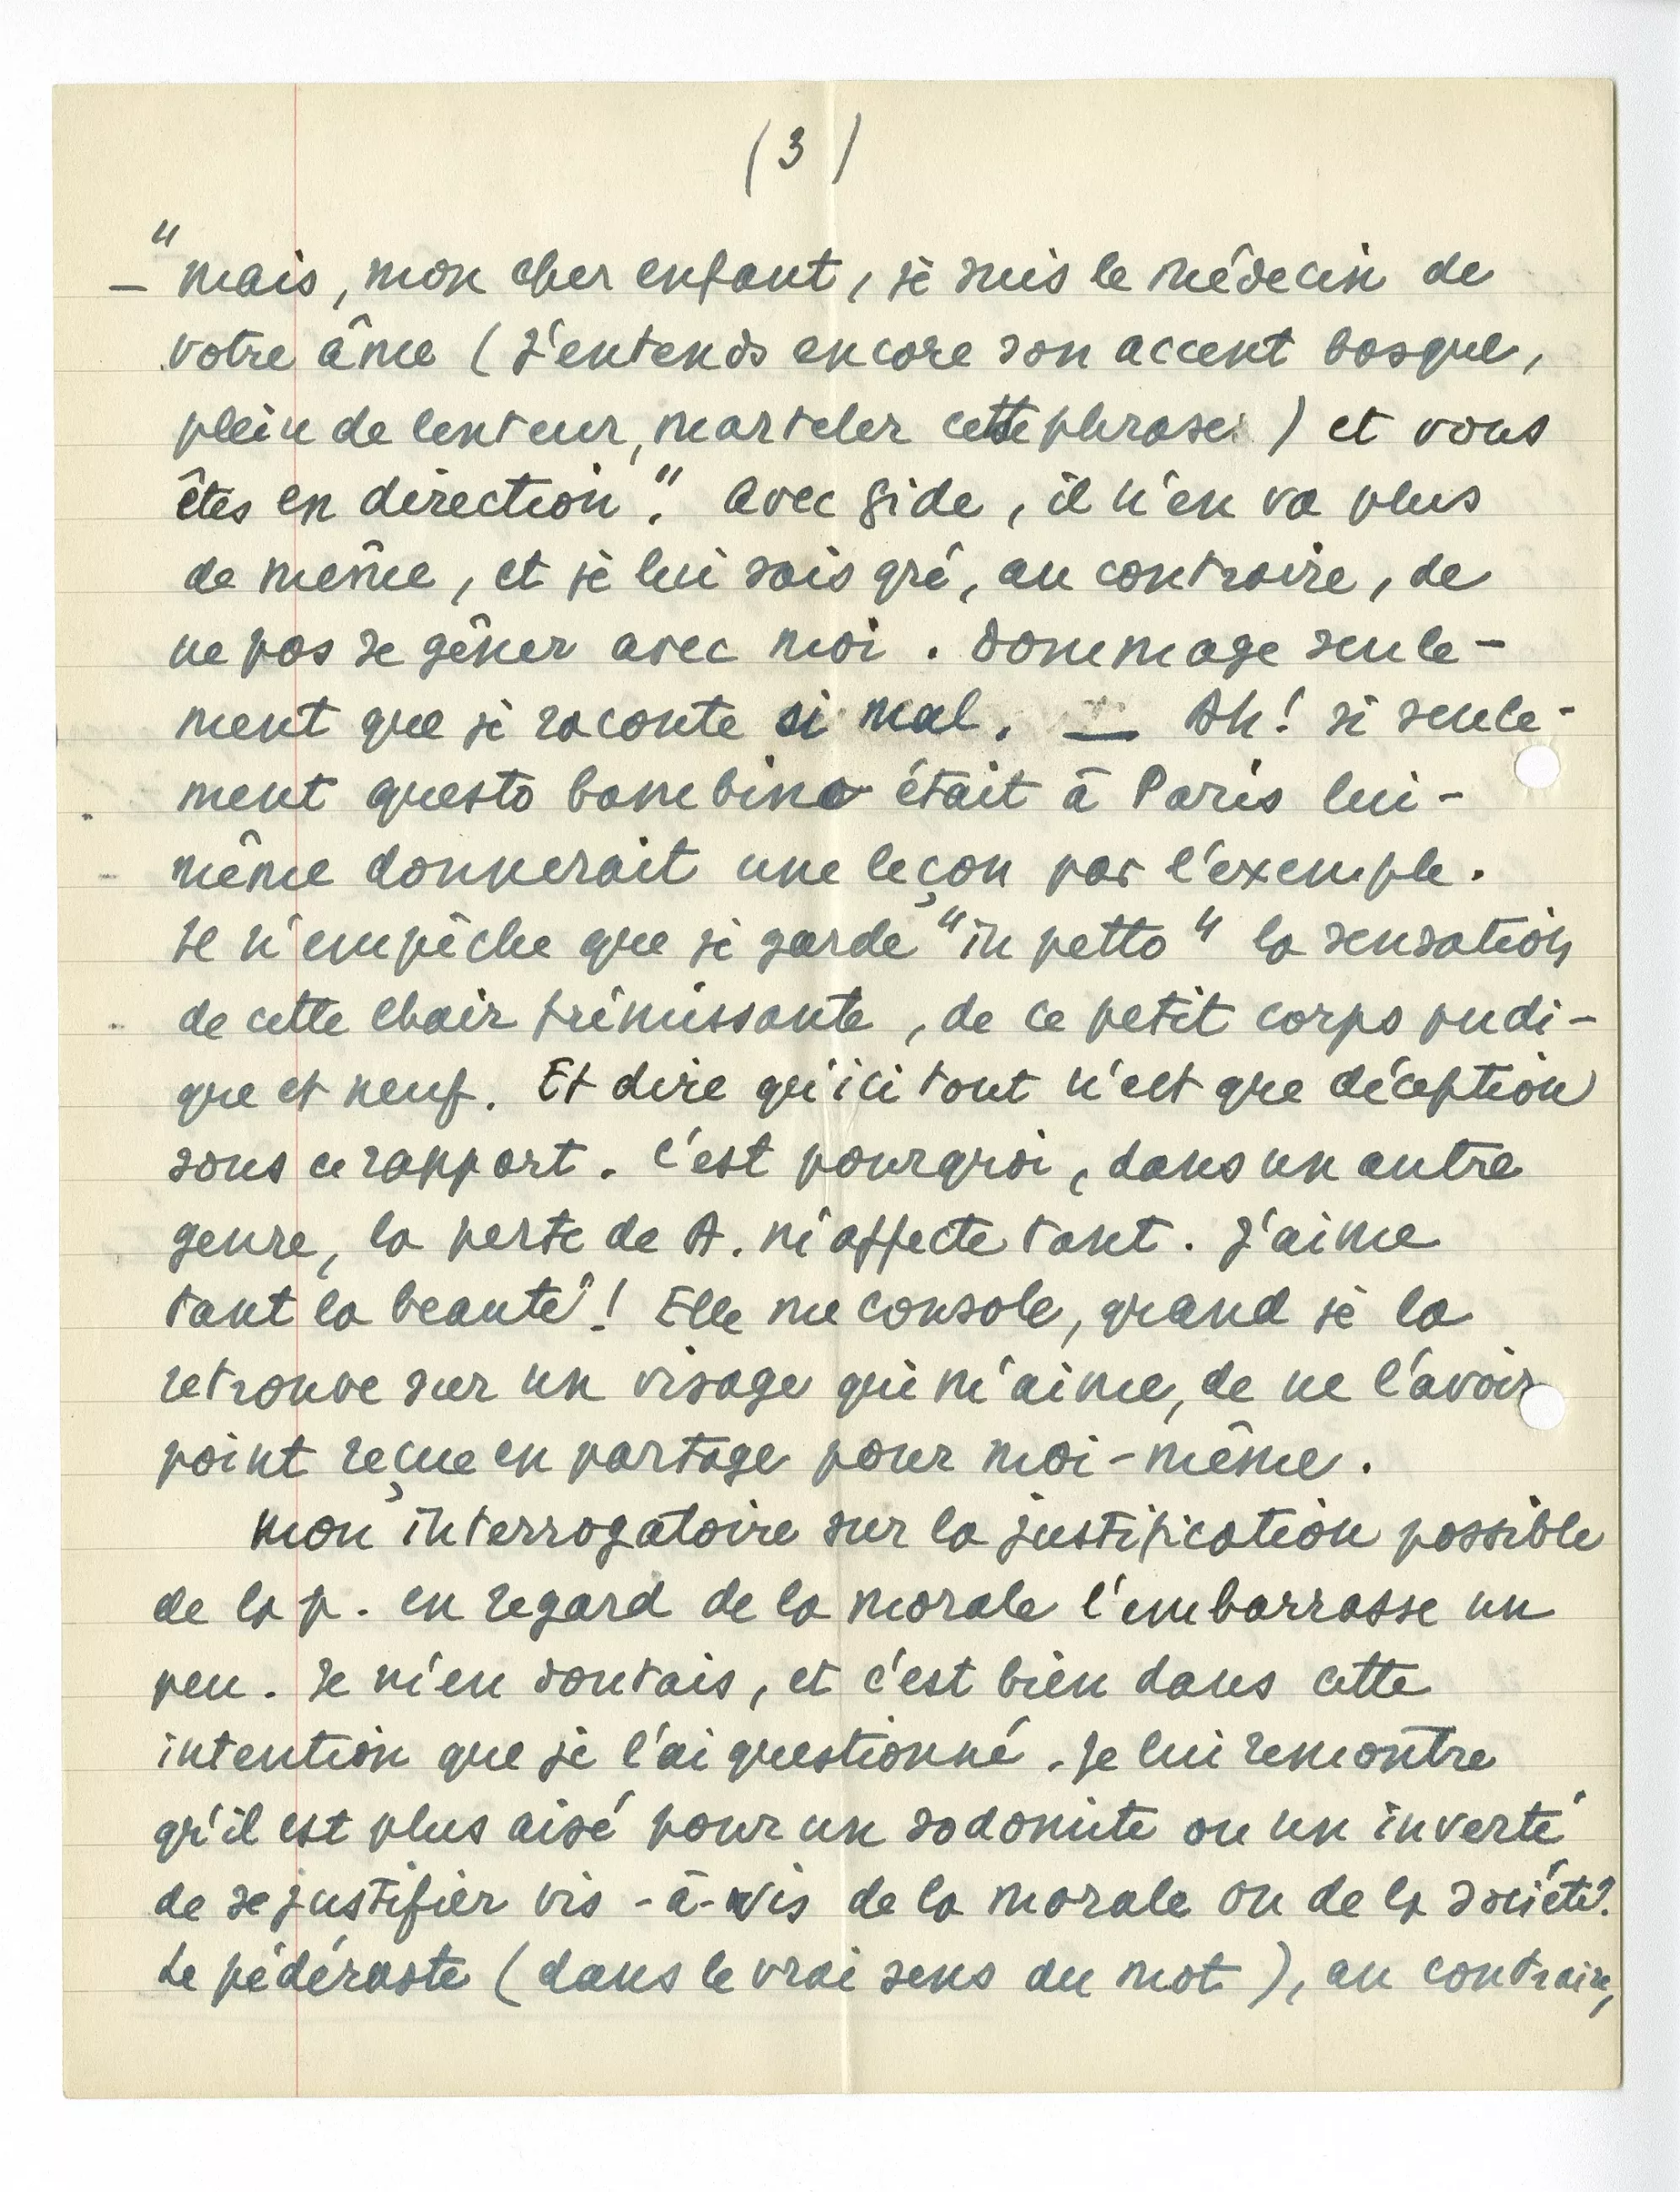 (3)
— "Mais, mon cher enfant, je suis le médecin de
votre âme (J'entends encore son accent basque,
plein de lenteur, marteler cette phrase) et vous
êtes en direction". Avec Gide, il n'en va plus
de même, et je lui sais gré, au contraire, de
ne pas se gêner avec moi. Dommage seule-
ment que je raconte si mal. — Ah! si seule-
ment questo bambino était à Paris lui-
même donnerait une leçon par l'exemple.
Il n'empêche que je garde "in petto" la sensation
de cette chair frémissante, de ce petit corps pudi-
que et neuf. Et dire qu'ici tout n'est que déception
sous ce rapport. C'est pourquoi, dans un autre
genre, la perte de A. m'affecte tant. J'aime
tant la beauté! Elle me console, quand je la
retrouve sur un visage qui m'aime, de ne l'avoir
point reçue en partage pour moi-même.
Mon interrogatoire sur la justification possible
de la p. en regard de la morale l'embarrasse un
peu. Je m'en doutais, et c'est bien dans cette
intention que je l'ai questionné. Je lui remontre
qu'il est plus aisé pour un sodomite ou un inverti
de se justifier vis-à-vis de la morale ou de la société.
Le pédéraste (dans le vrai sens du mot), au contraire,